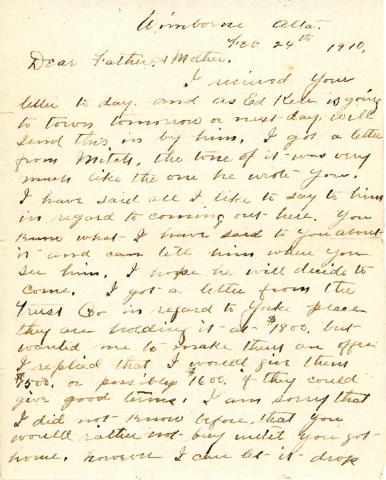 Wimborne Alta.
Feb 24th 1910.
Dear Father & Mother.
I recieved your
letter to day. and as Ed Keer is going
to town tomorrow or next day. will
send this in by him. I got a letter
from Mitch. the tone of it was very
much like the one he wrote you.
I have said all I like to say to him
in regard to coming out here. You
know what I have said to you about
it and can tell him when you
see him. I hope he will decide to
come. I got a letter from the
Trust Co in regard to place
they are holding it at $1800. but
wanted me to make them an offer
I replied that I would give them
$1500. or possibly $1600. if they could
give good terms. I am sorry that
I did not know before that you
would rather not buy until you got
home. however I can let it drop